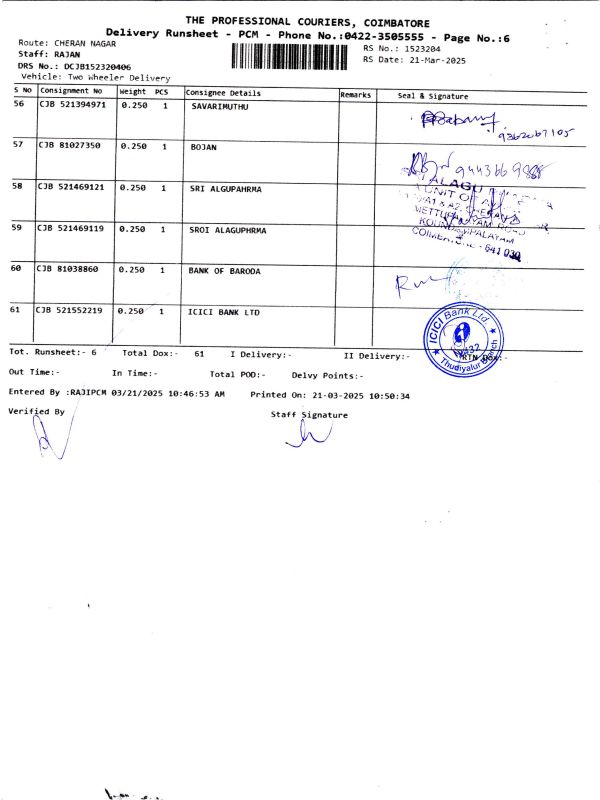 THE PROFESSIONAL COURIERS, COIMBATORE
Delivery Runsheet - PCM - Phone No.:0422-3505555 - Page No.:6
Route: CHERAN NAGAR
RS No.: 1523204
Staff: RAJAN
RS Date: 21-Mar-2025
DRS No.: DCJB152320406
Vehicle: Two Wheeler Delivery
S No Consignment No Weight PCS Consignee Details Remarks Seal & Signature
56 CJB 521394971 0.250 1 SAVARIMUTHU
9362067105
57 CJB 81027350 0.250 1 BOJAN
58 CJB 521469121 0.250 1 SRI ALGUPAHRMA
ALAGU
UNIT OF
59 CJB 521469119 0.250 1 SROI ALAGUPHRMA
60 CJB 81038860 0.250 1 BANK OF BARODA
61 CJB 521552219 0.250 1 ICICI BANK LTD
ICICI Bank Ltd
Thudiyalur Branch
Tot. Runsheet:- 6 Total Dox:- 61 I Delivery:- II Delivery:- RTN Dox:-
Out Time:- In Time:- Total POD:- Delvy Points:-
Entered By :RAJIPCM 03/21/2025 10:46:53 AM Printed On: 21-03-2025 10:50:34
Verified By Staff Signature